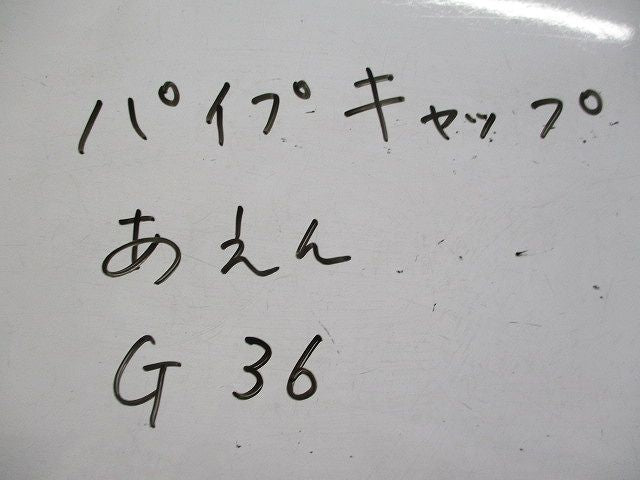 パイプキャップ
あえん
G 36